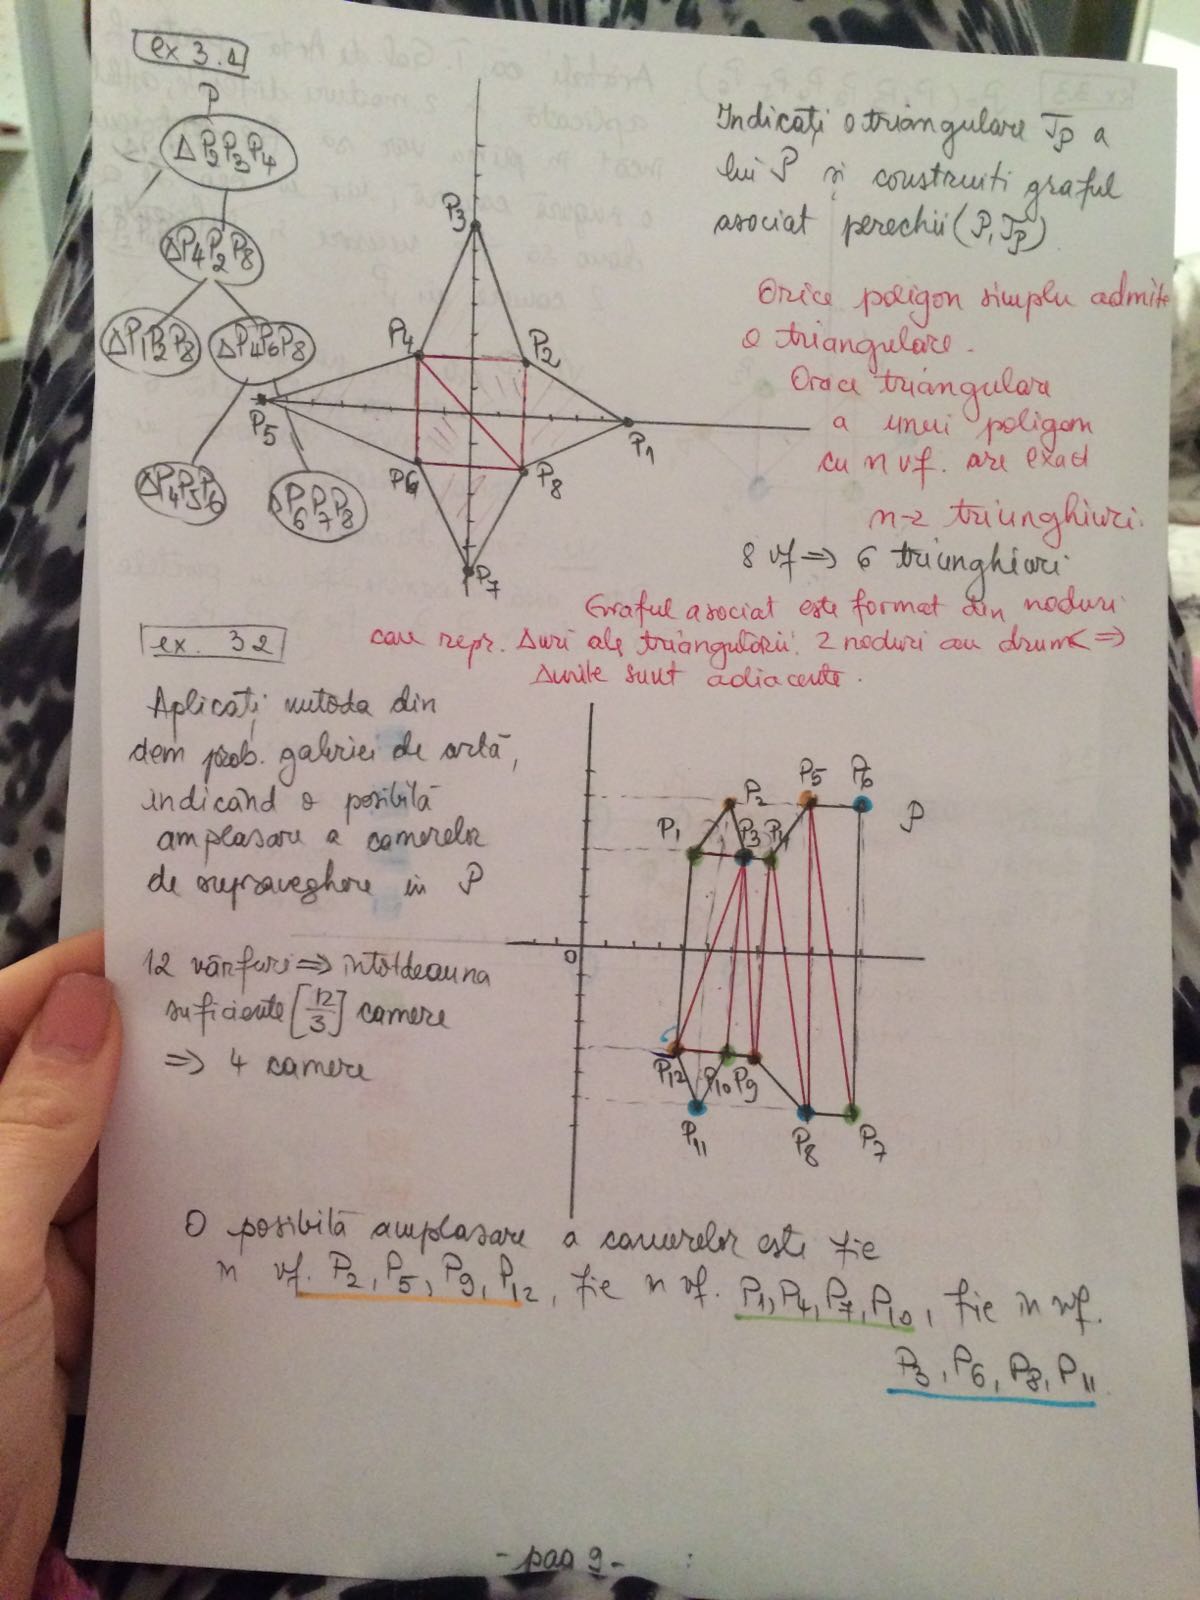 ex 3.1
P
Indicați o triangulare T_P a
lui P și construiți graful
asociat perechii (P, T_P)
ΔP2P3P4
ΔP4P2P8
ΔP1P2P8
ΔP4P6P8
ΔP4P5P6
ΔP6P7P8
P3
P4
P2
P5
P1
P6
P8
P7
Orice poligon simplu admite
o triangulare.
Orice triangulare
a unui poligon
cu n vf. are exact
n-2 triunghiuri.
8 vf => 6 triunghiuri
Graful asociat este format din noduri
care repr. Δuri ale triangulării. 2 noduri au drum <=>
Δurile sunt adiacente.
ex. 3 2
Aplicați metoda din
dem prob. galeriei de artă,
indicând o posibilă
amplasare a camerelor
de supraveghere în P
12 vârfuri => întotdeauna
suficiente [12/3] camere
=> 4 camere
P2
P5
P6
P
P1
P3
P4
0
P12
P10
P9
P11
P8
P7
O posibilă amplasare a camerelor este fie
în vf. P2, P5, P9, P12, fie în vf. P1, P4, P7, P10, fie în vf.
P3, P6, P8, P11
- pag 9 -